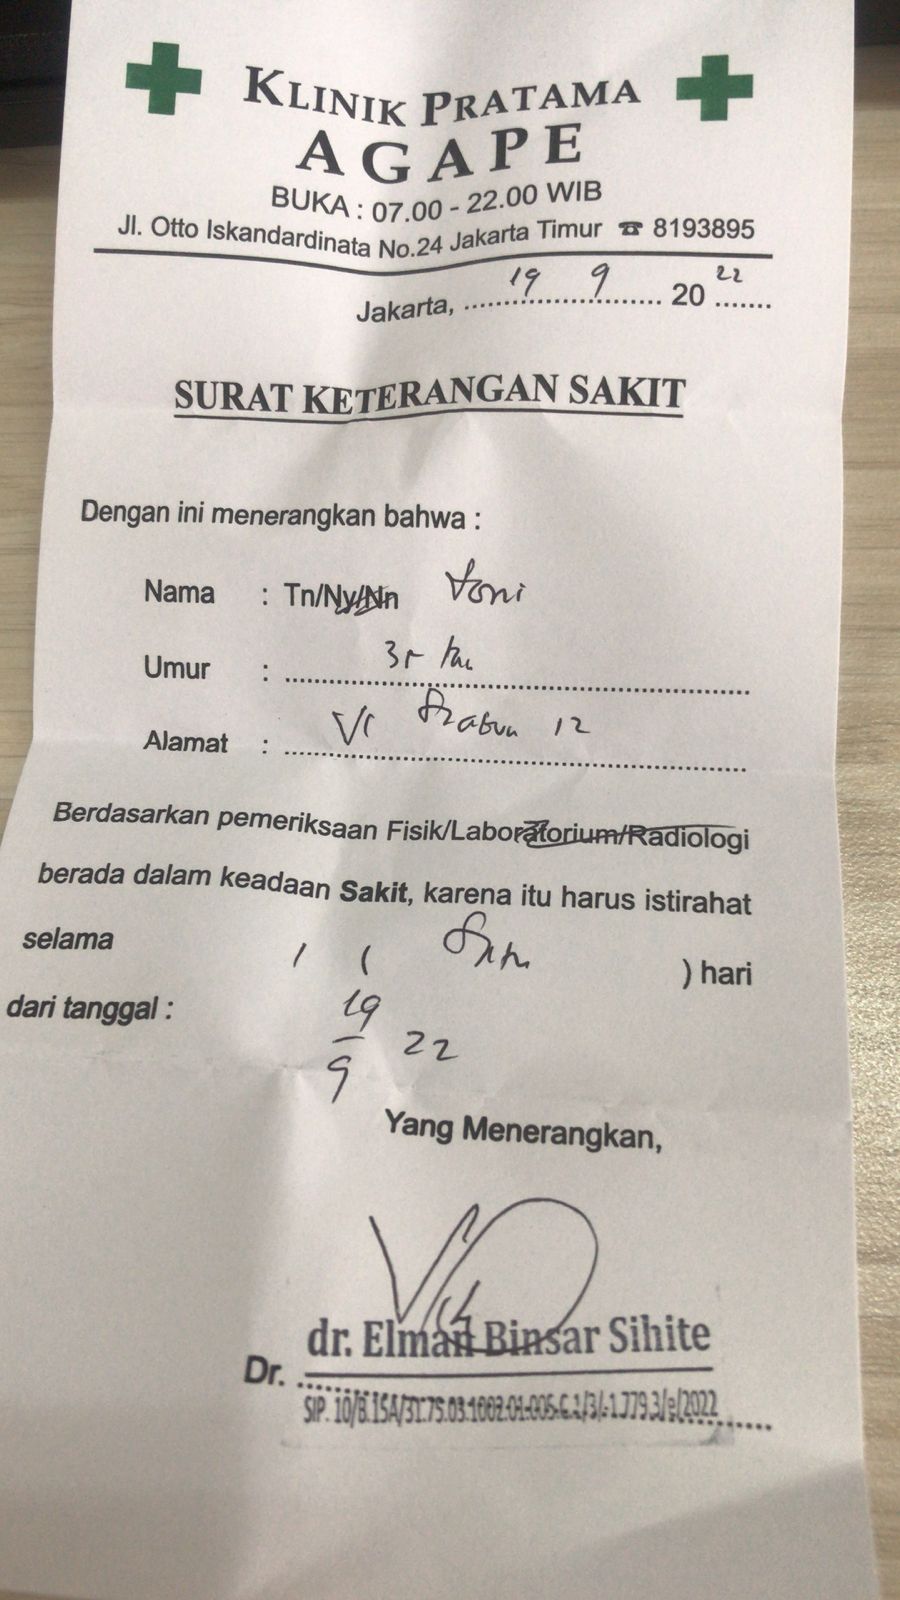 KLINIK PRATAMA
AGAPE
BUKA : 07.00 - 22.00 WIB
Jl. Otto Iskandardinata No.24 Jakarta Timur ☎ 8193895
Jakarta, 19 9 20 22
SURAT KETERANGAN SAKIT
Dengan ini menerangkan bahwa :
Nama : Tn/Ny/Nn Toni
Umur :
Alamat : 12
Berdasarkan pemeriksaan Fisik/Laboratorium/Radiologi
berada dalam keadaan Sakit, karena itu harus istirahat
selama ) hari
dari tanggal : 19/9 22
Yang Menerangkan,
dr. Elman Binsar Sihite
Dr.